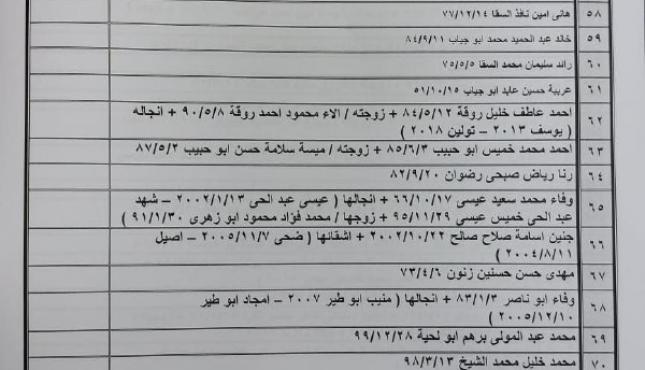 ٥٨ هانى امين نافذ السقا ٧٧/١٢/١٤
٥٩ خالد عبد الحميد محمد ابو جياب ٨٤/٩/١١
٦٠ رائد سليمان محمد السقا ٧٥/٥/٥
٦١ عربية حسين عابد ابو جياب ٥١/١٠/١٥
٦٢ احمد عاطف خليل روقة ٨٤/٥/١٢ + زوجته / الاء محمود احمد روقة ٩٠/٥/٨ + انجاله
( يوسف ٢٠١٣ – تولين ٢٠١٨ )
٦٣ احمد محمد خميس ابو حبيب ٨٥/٦/٣ + زوجته / ميسة سلامة حسن ابو حبيب ٨٧/٥/٢
٦٤ رنا رياض صبحى رضوان ٨٢/٩/٢٠
٦٥ وفاء محمد سعيد عيسى ٦٦/١٠/١٧ + انجالها ( عيسى عبد الحى ٢٠٠٢/١/١٣ – شهد
عبد الحى خميس عيسى ٩٥/١١/٢٩ + زوجها / محمد فؤاد محمود ابو زهرى ٩١/١/٣٠ )
٦٦ جنين اسامة صلاح صالح ٢٠٠٢/١٠/٢٢ + اشقائها ( ضحى ٢٠٠٥/١١/٧ – اصيل
٢٠٠٤/٨/١١ )
٦٧ مهدى حسن حسنين زنون ٧٣/٤/٦
٦٨ وفاء ابو ناصر ٨٣/١/٣ + انجالها ( منيب ابو طير ٢٠٠٧ – امجاد ابو طير
٢٠٠٥/١٢/١٠ )
٦٩ محمد عبد المولى برهم ابو لحية ٩٩/١٢/٢٨
٧٠ محمد خليل محمد الشيخ ٩٨/٣/١٣